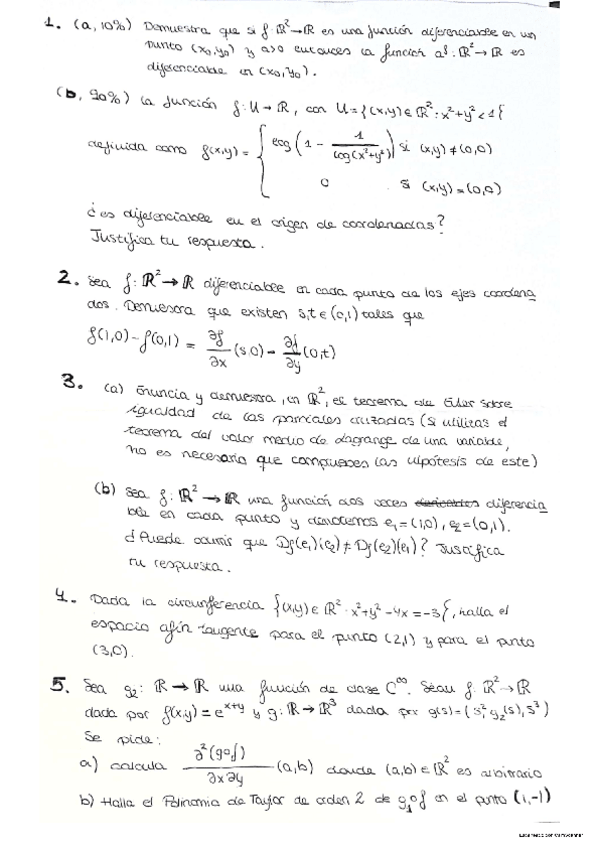 1. (a, 10%) Demuestra que si f: ℝ²→ℝ es una función diferenciable en un
punto (x₀,y₀) y a>0 entonces la función af: ℝ²→ℝ es
diferenciable en (x₀,y₀).
(b, 90%) La función f: U→ℝ, con U={(x,y)∈ℝ²: x²+y²<1}
definida como f(x,y) = { log(1 - 1/log(x²+y²)) si (x,y)≠(0,0)
0 si (x,y)=(0,0)
¿es diferenciable en el origen de coordenadas?
Justifica tu respuesta.
2. Sea f: ℝ²→ℝ diferenciable en cada punto de los ejes coordena
dos. Demuestra que existen s,t∈(0,1) tales que
f(1,0)-f(0,1) = ∂f/∂x (s,0) - ∂f/∂y (0,t)
3. (a) Enuncia y demuestra, en ℝ², el teorema de Euler sobre
igualdad de las parciales cruzadas (si utilizas el
teorema del valor medio de Lagrange de una variable,
no es necesario que compruebes las hipótesis de este)
(b) Sea f: ℝ²→ℝ una función dos veces diferencia
ble en cada punto y denotemos e₁=(1,0), e₂=(0,1).
¿Puede ocurrir que Df(e₁)(e₂) ≠ Df(e₂)(e₁)? Justifica
tu respuesta.
4. Dada la circunferencia {(x,y)∈ℝ²: x²+y²-4x=-3}, halla el
espacio afín tangente para el punto (2,1) y para el punto
(3,0).
5. Sea g₂: ℝ→ℝ una función de clase C^∞. Sean f: ℝ²→ℝ
dada por f(x,y)=e^(x+y) y g: ℝ→ℝ³ dada por g(s)=(s², g₂(s), s³)
Se pide:
a) calcula ∂²(g∘f)/∂x∂y (a,b) donde (a,b)∈ℝ² es arbitrario
b) Halla el Polinomio de Taylor de orden 2 de g₁∘f en el punto (1,-1)